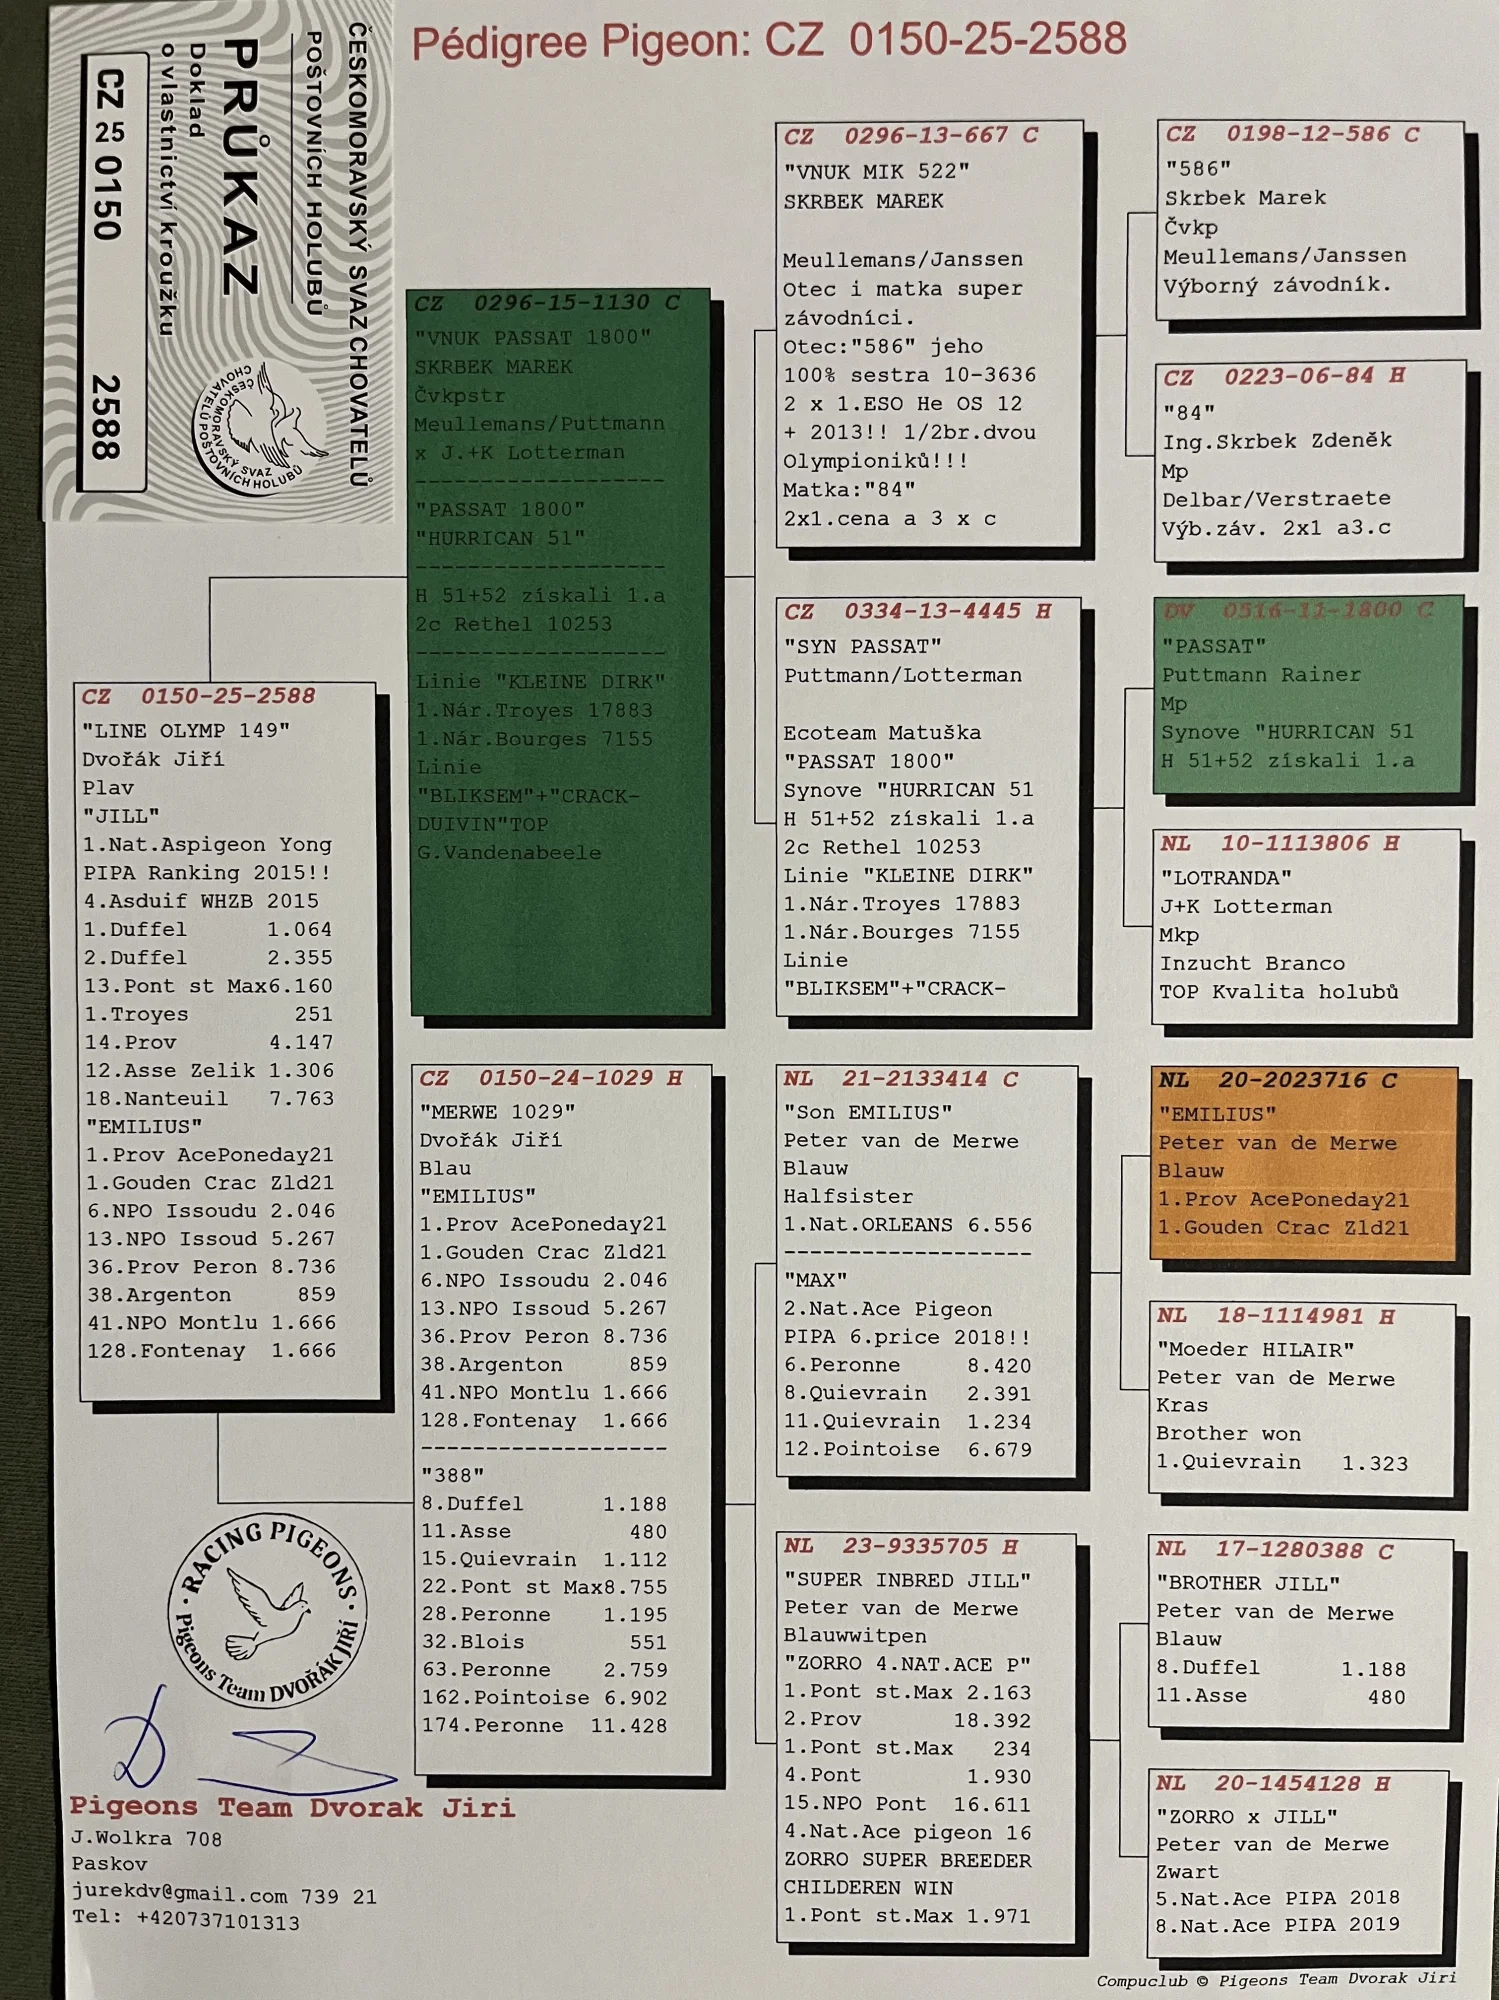 Pédigree Pigeon: CZ 0150-25-2588
ČESKOMORAVSKÝ SVAZ CHOVATELŮ
POŠTOVNÍCH HOLUBŮ
PRŮKAZ
Doklad
o vlastnictví kroužku
CZ 25 0150 2588
ČESKOMORAVSKÝ SVAZ
CHOVATELŮ POŠTOVNÍCH HOLUBŮ
CZ 0150-25-2588
"LINE OLYMP 149"
Dvořák Jiří
Plav
"JILL"
1.Nat.Aspigeon Yong
PIPA Ranking 2015!!
4.Asduif WHZB 2015
1.Duffel 1.064
2.Duffel 2.355
13.Pont st Max6.160
1.Troyes 251
14.Prov 4.147
12.Asse Zelik 1.306
18.Nanteuil 7.763
"EMILIUS"
1.Prov AcePoneday21
1.Gouden Crac Zld21
6.NPO Issoudu 2.046
13.NPO Issoud 5.267
36.Prov Peron 8.736
38.Argenton 859
41.NPO Montlu 1.666
128.Fontenay 1.666
CZ 0296-15-1130 C
"VNUK PASSAT 1800"
SKRBEK MAREK
Čvkpstr
Meullemans/Puttmann
x J.+K Lotterman
-------------------
"PASSAT 1800"
"HURRICAN 51"
-------------------
H 51+52 získali 1.a
2c Rethel 10253
-------------------
Linie "KLEINE DIRK"
1.Nár.Troyes 17883
1.Nár.Bourges 7155
Linie
"BLIKSEM"+"CRACK-
DUIVIN"TOP
G.Vandenabeele
CZ 0150-24-1029 H
"MERWE 1029"
Dvořák Jiří
Blau
"EMILIUS"
1.Prov AcePoneday21
1.Gouden Crac Zld21
6.NPO Issoudu 2.046
13.NPO Issoud 5.267
36.Prov Peron 8.736
38.Argenton 859
41.NPO Montlu 1.666
128.Fontenay 1.666
-------------------
"388"
8.Duffel 1.188
11.Asse 480
15.Quievrain 1.112
22.Pont st Max8.755
28.Peronne 1.195
32.Blois 551
63.Peronne 2.759
162.Pointoise 6.902
174.Peronne 11.428
CZ 0296-13-667 C
"VNUK MIK 522"
SKRBEK MAREK
Meullemans/Janssen
Otec i matka super
závodníci.
Otec:"586" jeho
100% sestra 10-3636
2 x 1.ESO He OS 12
+ 2013!! 1/2br.dvou
Olympioniků!!!
Matka:"84"
2x1.cena a 3 x c
CZ 0334-13-4445 H
"SYN PASSAT"
Puttmann/Lotterman
Ecoteam Matuška
"PASSAT 1800"
Synove "HURRICAN 51
H 51+52 získali 1.a
2c Rethel 10253
Linie "KLEINE DIRK"
1.Nár.Troyes 17883
1.Nár.Bourges 7155
Linie
"BLIKSEM"+"CRACK-
NL 21-2133414 C
"Son EMILIUS"
Peter van de Merwe
Blauw
Halfsister
1.Nat.ORLEANS 6.556
------------------
"MAX"
2.Nat.Ace Pigeon
PIPA 6.price 2018!!
6.Peronne 8.420
8.Quievrain 2.391
11.Quievrain 1.234
12.Pointoise 6.679
NL 23-9335705 H
"SUPER INBRED JILL"
Peter van de Merwe
Blauwwitpen
"ZORRO 4.NAT.ACE P"
1.Pont st.Max 2.163
2.Prov 18.392
1.Pont st.Max 234
4.Pont 1.930
15.NPO Pont 16.611
4.Nat.Ace pigeon 16
ZORRO SUPER BREEDER
CHILDEREN WIN
1.Pont st.Max 1.971
CZ 0198-12-586 C
"586"
Skrbek Marek
Čvkp
Meullemans/Janssen
Výborný závodník.
CZ 0223-06-84 H
"84"
Ing.Skrbek Zdeněk
Mp
Delbar/Verstraete
Výb.záv. 2x1 a3.c
DV 0516-11-1800 C
"PASSAT"
Puttmann Rainer
Mp
Synove "HURRICAN 51
H 51+52 získali 1.a
NL 10-1113806 H
"LOTRANDA"
J+K Lotterman
Mkp
Inzucht Branco
TOP Kvalita holubů
NL 20-2023716 C
"EMILIUS"
Peter van de Merwe
Blauw
1.Prov AcePoneday21
1.Gouden Crac Zld21
NL 18-1114981 H
"Moeder HILAIR"
Peter van de Merwe
Kras
Brother won
1.Quievrain 1.323
NL 17-1280388 C
"BROTHER JILL"
Peter van de Merwe
Blauw
8.Duffel 1.188
11.Asse 480
NL 20-1454128 H
"ZORRO x JILL"
Peter van de Merwe
Zwart
5.Nat.Ace PIPA 2018
8.Nat.Ace PIPA 2019
• RACING PIGEONS •
Pigeons Team DVOŘÁK JIŘÍ
Pigeons Team Dvorak Jiri
J.Wolkra 708
Paskov
jurekdv@gmail.com 739 21
Tel: +420737101313
Compuclub © Pigeons Team Dvorak Jiri